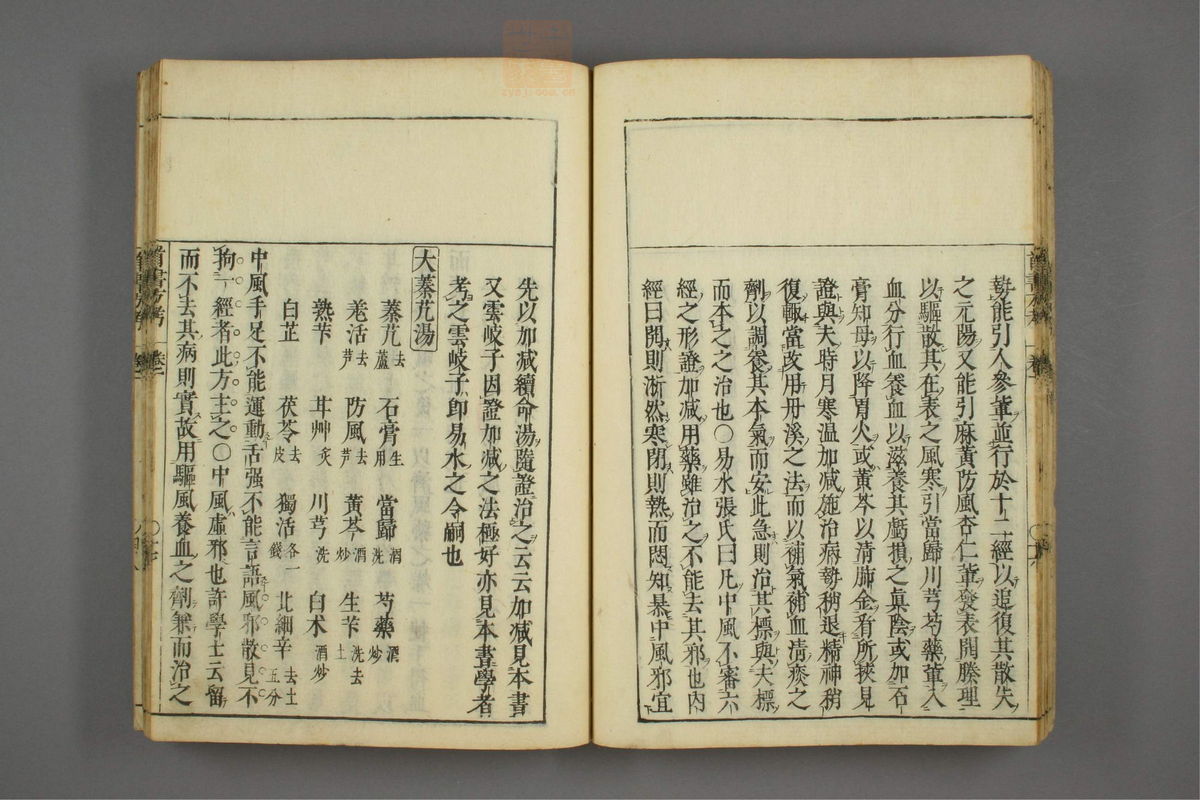 勢能引人參輩並行於十二經以追復其散失
之元陽又能引麻黃防風杏仁輩發表開腠理
以驅散其在表之風寒引當歸川芎芍藥輩入
血分行血養血以滋養其虧損之眞陰或加石
膏知母以降胃火或黃芩以清肺金看所挾見
證與夫時月寒温加減施治病勢稍退精神稍
復輙當改用丹溪之法而以補氣補血清痰之
劑以調養其本氣而安此急則治其標與夫標
而本之之治也〇易水張氏曰凡中風不審六
經之形證加減用藥雖治之不能去其邪也內
經曰開則淅然寒閉則熱而悶知暴中風邪宜
先以加減續命湯隨證治之云云加減見本書
又雲岐子因證加減之法極好亦見本書學者
考之雲岐子即易水之令嗣也
大秦艽湯
蓁艽去蘆 石膏生用 當歸酒洗 芍藥酒炒
羗活去芦 防風去芦 黃芩酒炒 生苄洗去土
熟苄 甘艸炙 川芎洗 白术酒炒
白芷 茯苓去皮 獨活各一錢 北細辛去土五分
中風手足不能運動舌强不能言語風邪散見不
拘一經者此方主之〇中風虛邪也許學士云留
而不去其病則實故用驅風養血之劑兼而治之